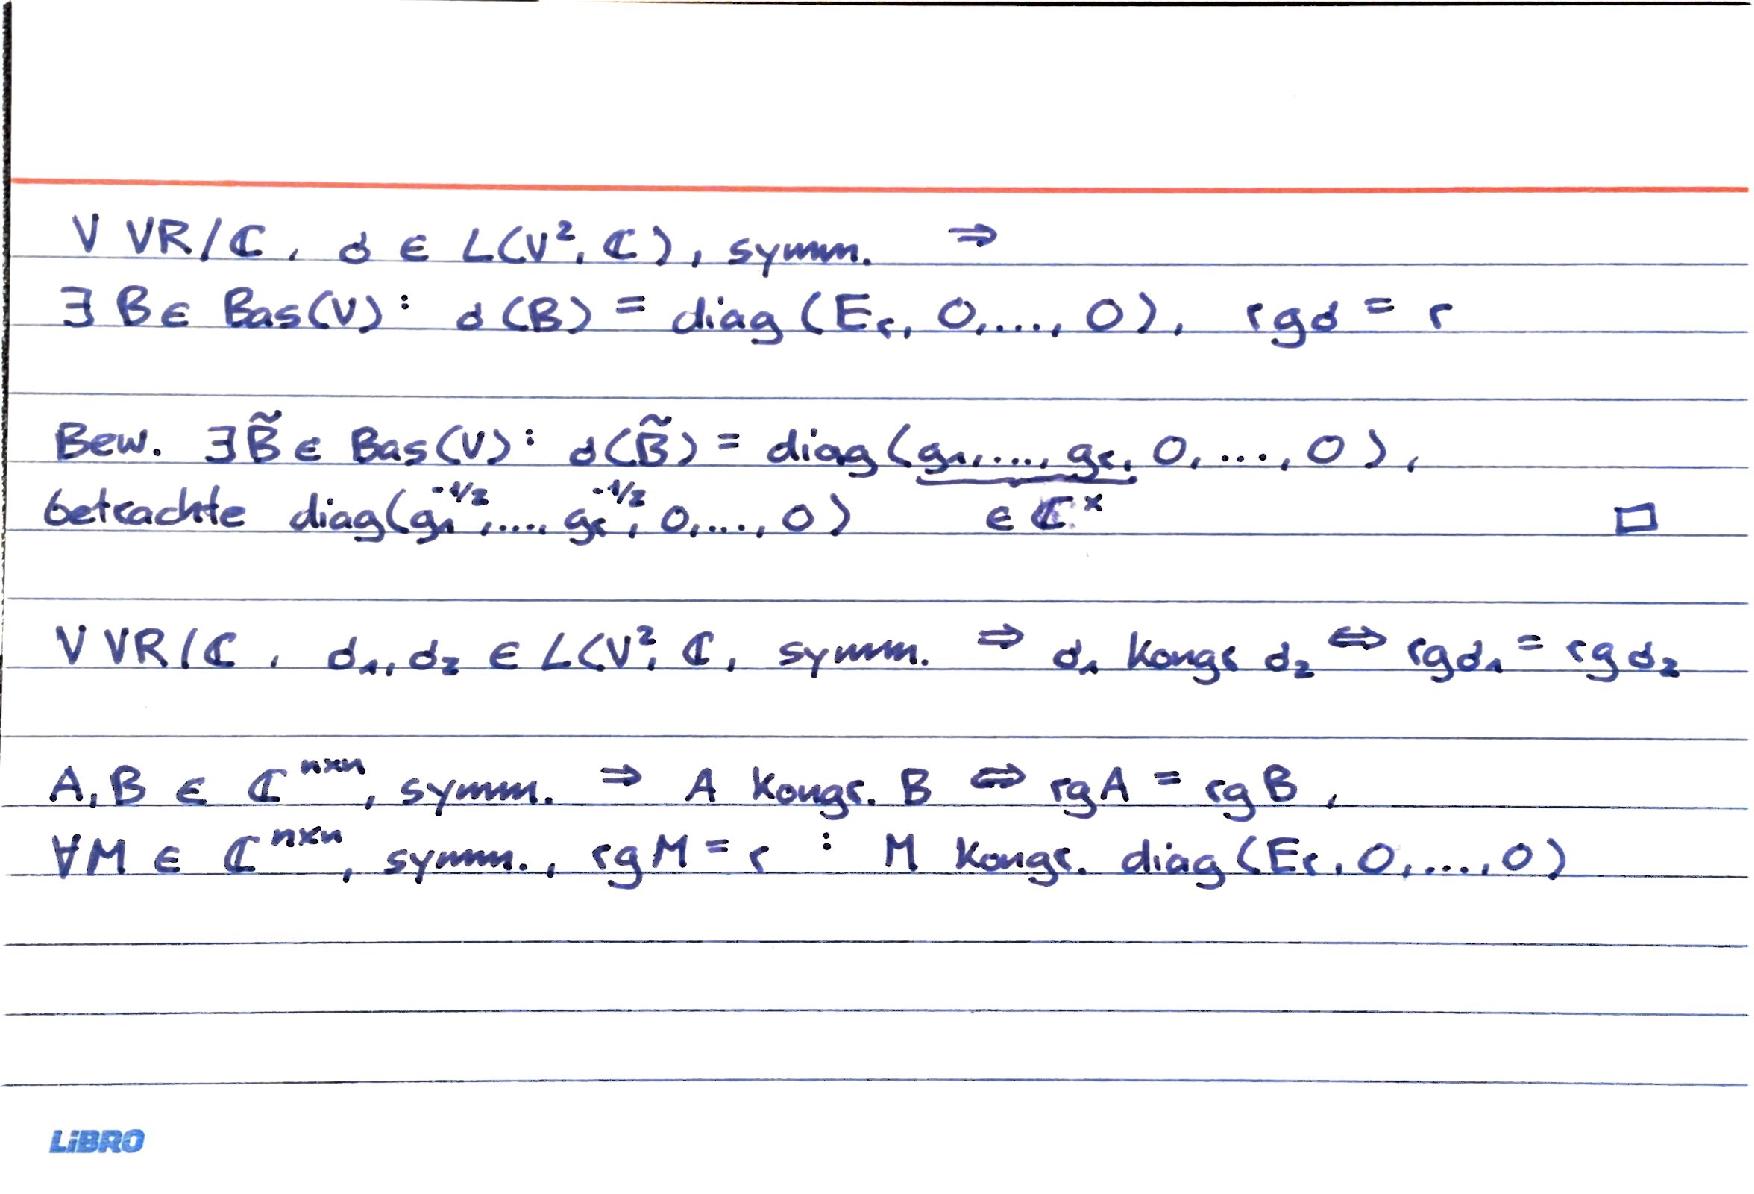 V VR/ℂ, σ ∈ L(V², ℂ), symm. ⇒
∃ B ∈ Bas(V): σ(B) = diag(Eᵣ, 0,..., 0), rgσ = r
Bew. ∃B̃ ∈ Bas(V): σ(B̃) = diag(g₁,..., gᵣ, 0,...,0),
betrachte diag(g₁^{-1/2},..., gᵣ^{-1/2}, 0,..., 0) ∈ ℂ^× □
V VR/ℂ, σ₁, σ₂ ∈ L(V², ℂ, symm. ⇒ σ₁ kongr σ₂ ⇔ rgσ₁ = rg σ₂
A, B ∈ ℂ^{n×n}, symm. ⇒ A kongr. B ⇔ rgA = rg B,
∀M ∈ ℂ^{n×n}, symm., rgM = r : M kongr. diag(Eᵣ, 0,...,0)
LiBRO